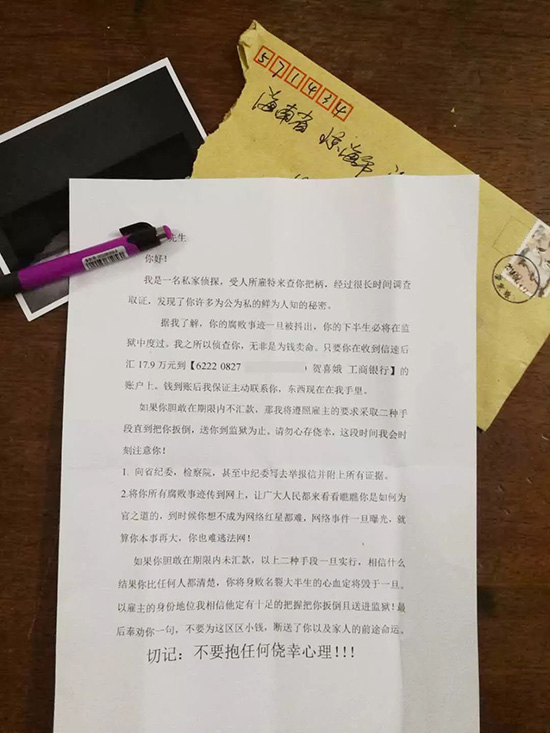 571434
海南省 琼海市
先生
你好！
我是一名私家侦探，受人所雇特来查你把柄，经过很长时间调查
取证，发现了你许多为公为私的鲜为人知的秘密。
据我了解，你的腐败事迹一旦被抖出，你的下半生必将在监
狱中度过。我之所以侦查你，无非是为钱卖命。只要你在收到信速后
汇 17.9 万元到【6222 0827 ）贺喜娥 工商银行】的
账户上。钱到账后我保证主动联系你，东西现在在我手里。
如果你胆敢在期限内不汇款，那我将遵照雇主的要求采取二种手
段直到把你扳倒，送你到监狱为止。请勿心存侥幸，这段时间我会时
刻注意你！
1. 向省纪委，检察院，甚至中纪委写去举报信并附上所有证据。
2.将你所有腐败事迹传到网上，让广大人民都来看看瞧瞧你是如何为
官之道的，到时候你想不成为网络红星都难，网络事件一旦曝光，就
算你本事再大，你也难逃法网！
如果你胆敢在期限内未汇款，以上二种手段一旦实行，相信什么
结果你比任何人都清楚，你将身败名裂大半生的心血定将毁于一旦。
以雇主的身份地位我相信他定有十足的把握把你扳倒且送进监狱！最
后奉劝你一句，不要为这区区小钱，断送了你以及家人的前途命运。
切记：不要抱任何侥幸心理!!!